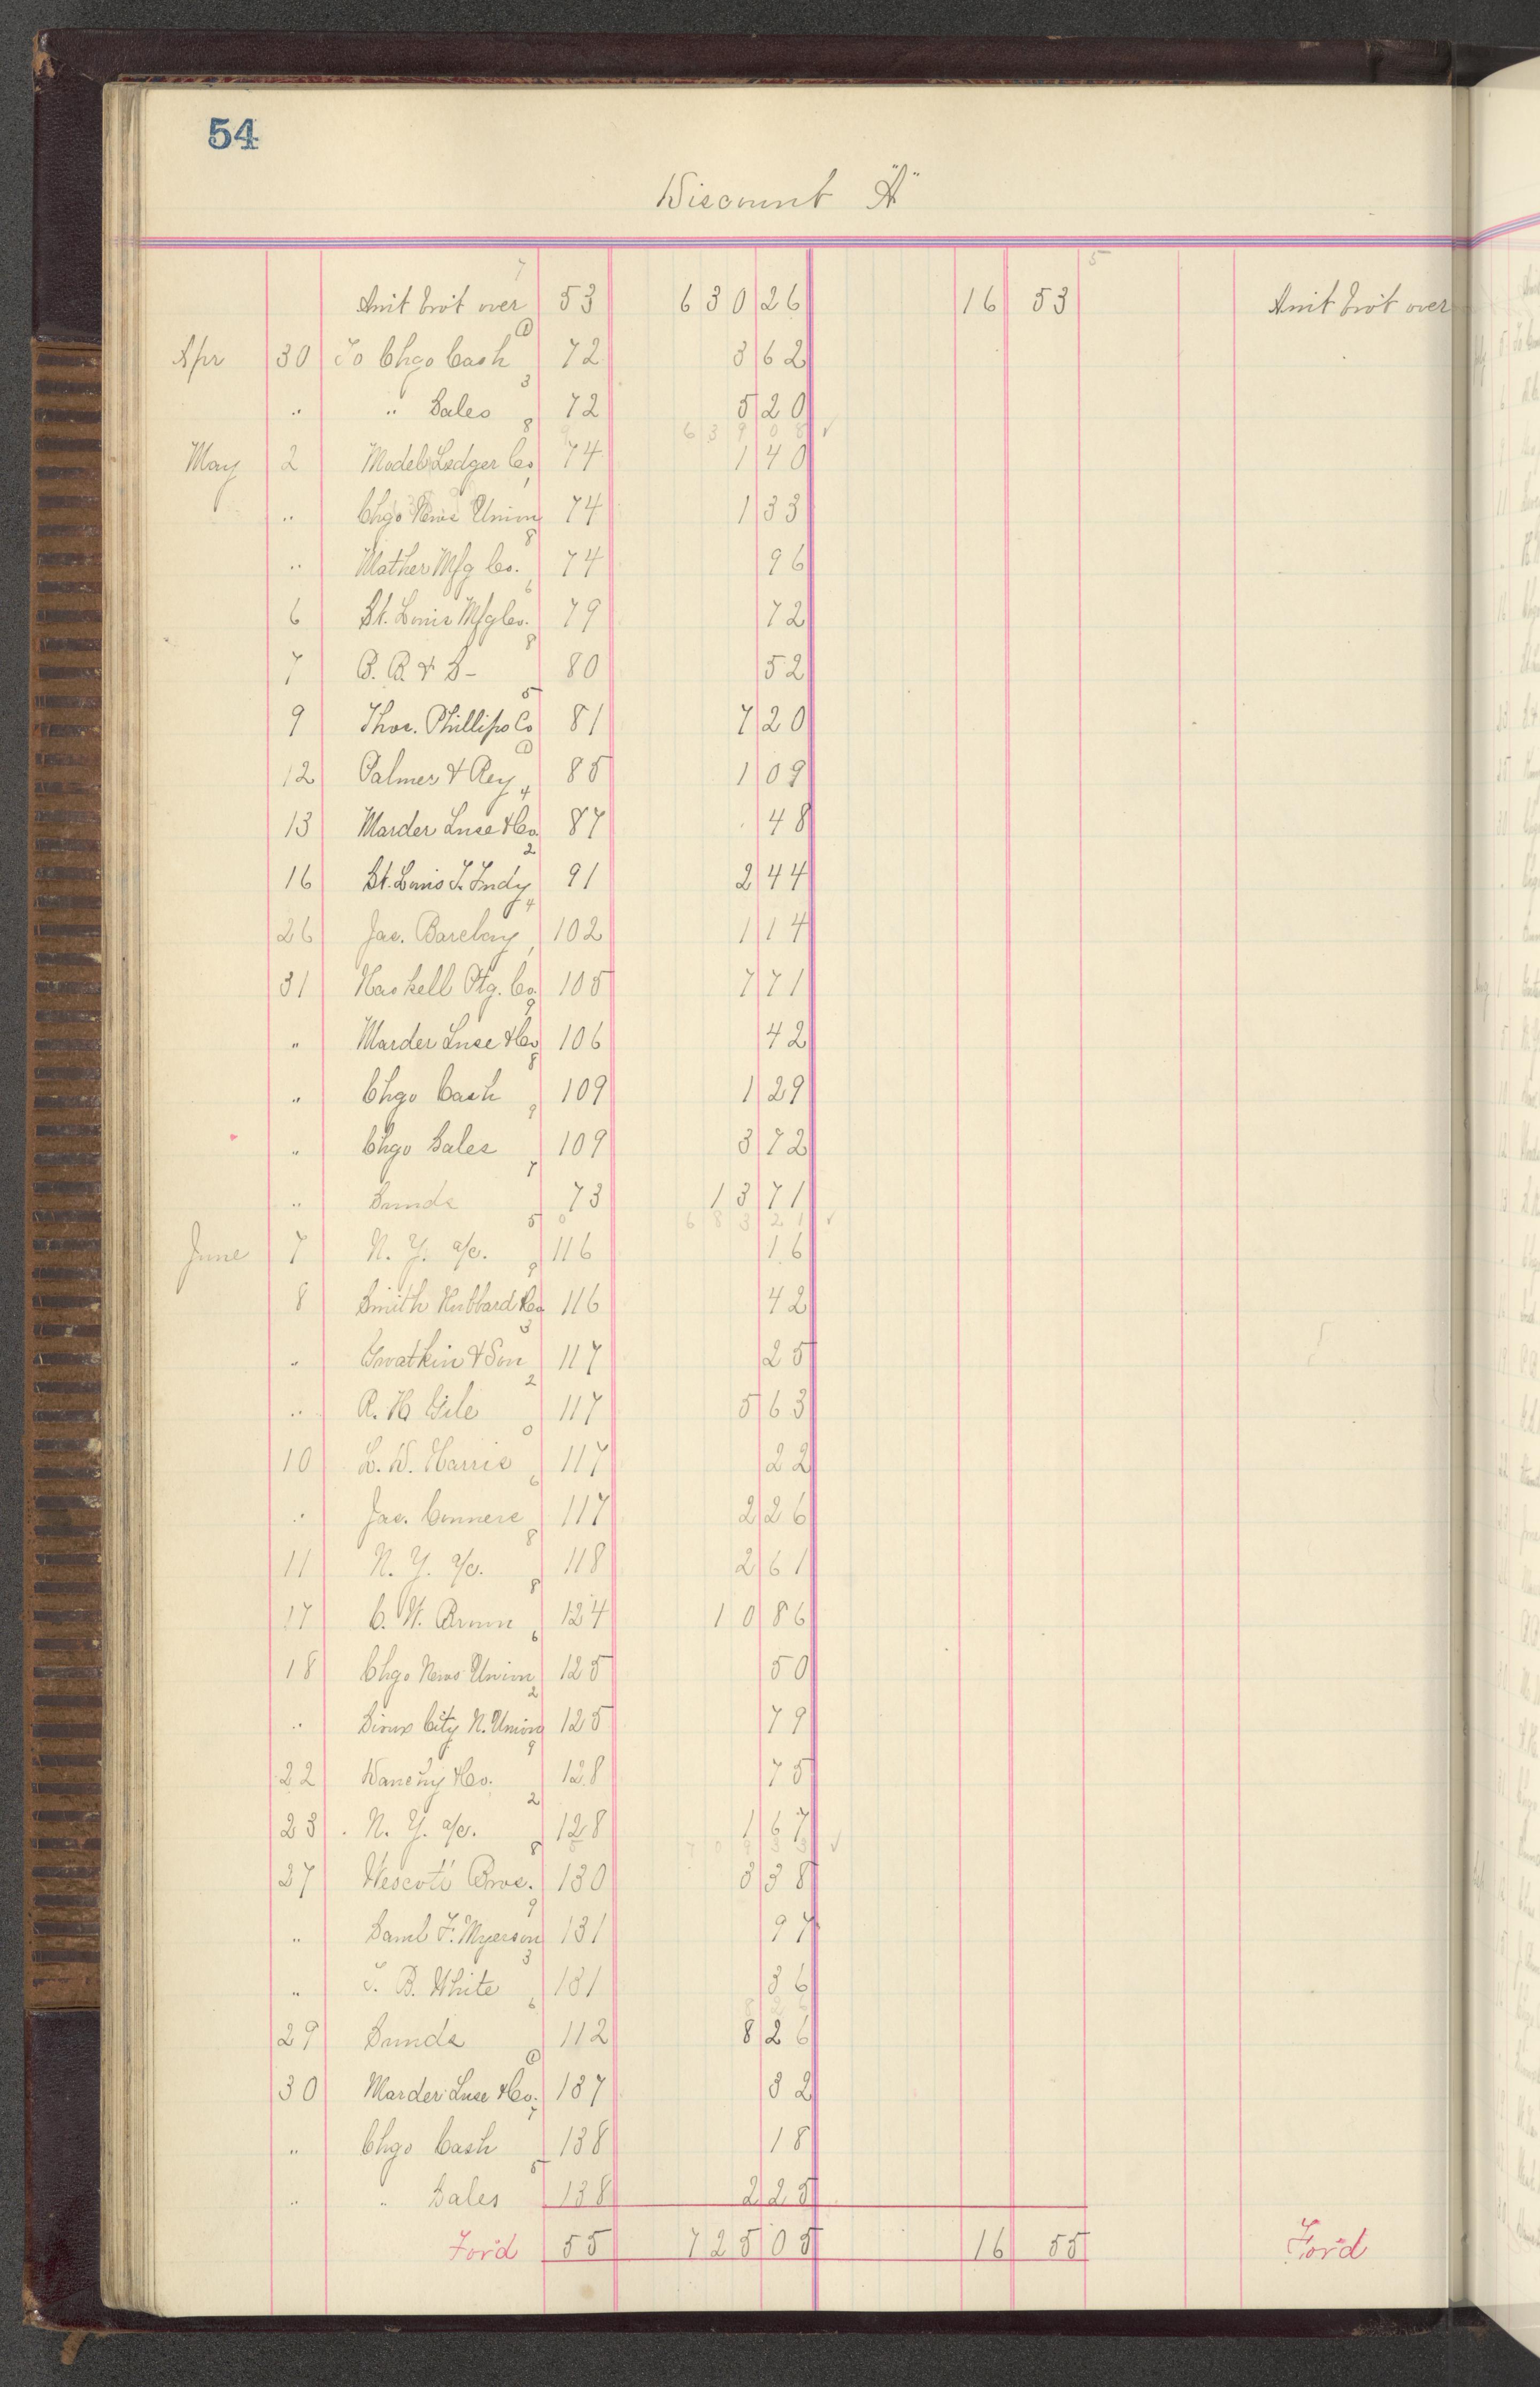 54
Discount "A"
Amt brot over 53 630 26 16 53 Amt brot over
Apr 30 To Chgo Cash 72 3 62
" " Sales 72 5 20
639 08 ✓
May 2 Model Ledger Co 74 1 40
" Chgo News Union 74 1 33
" Mather Mfg Co. 74 96
6 St. Louis Mfg Co. 79 72
7 B. B & S- 80 52
9 Thos. Phillips Co 81 7 20
12 Palmer & Rey 85 1 09
13 Marder Luse & Co. 87 48
16 St. Louis T. Fndy 91 2 44
26 Jas. Barclay 102 1 14
31 Haskell Ptg. Co. 105 7 71
" Marder Luse & Co 106 42
" Chgo Cash 109 1 29
" Chgo Sales 109 3 72
" Sunds 73 13 71
683 21 ✓
June 7 N. Y. a/c. 116 16
8 Smith Hubbard & Co 116 42
" Gwatkin & Son 117 25
" R. H Gile 117 5 63
10 L. D. Harris 117 22
" Jas. Conners 117 2 26
11 N. Y. a/c. 118 2 61
17 C. W. Brown 124 10 86
18 Chgo News Union 125 50
" Sioux City N. Union 125 79
22 & Co. 128 75
23 N. Y. a/c. 128 1 67
709 33 ✓
27 Wescott Bros. 130 3 38
" Saml F. Myerson 131 97
" T. B. White 131 36
29 Sunds 112 8 26
30 Marder Luse & Co. 137 32
" Chgo Cash 138 18
" " Sales 138 2 25
For'd 55 725 05 16 55 For'd